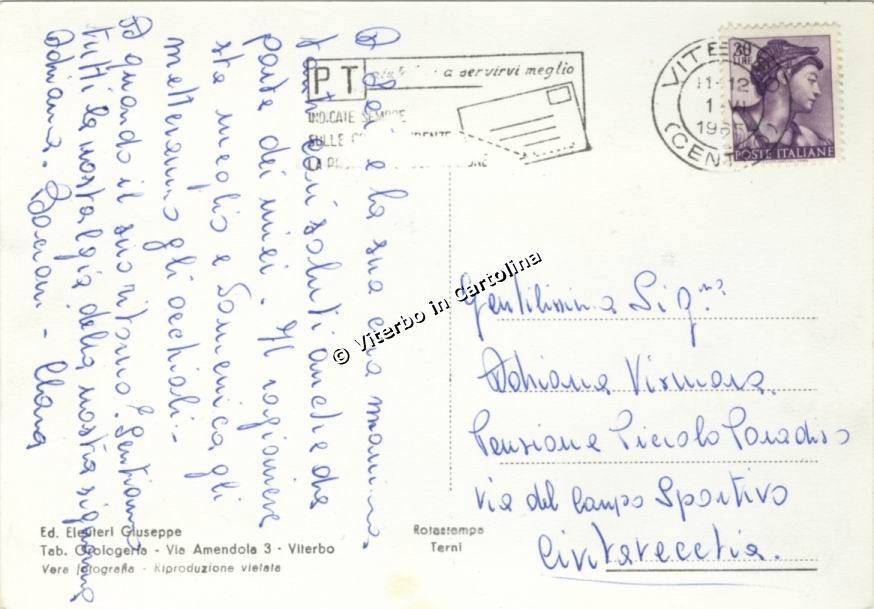 A Lei e la sua cara mamma,
tanti cari saluti anche da
parte dei miei. Il ragioniere
sta meglio e Domenica gli
metteranno gli occhiali.-
A quando il suo ritorno? Sentiamo
tutti la nostalgia della nostra signorina
Adriana. Bacioni - Clara
PT
a servirvi meglio
INDICATE SEMPRE
SULLE
LA
VITERBO
11-12
(CENT
30
LIRE
POSTE ITALIANE
© Viterbo in Cartolina
Gentilissima Sig.na
Adriana Vismara
Pensione Piccolo Paradiso
Via del Campo Sportivo
Civitavecchia.
Ed. Eleuteri Giuseppe
Tab. Orologeria - Via Amendola 3 - Viterbo
Vera fotografia - Riproduzione vietata
Rotastampa
Terni